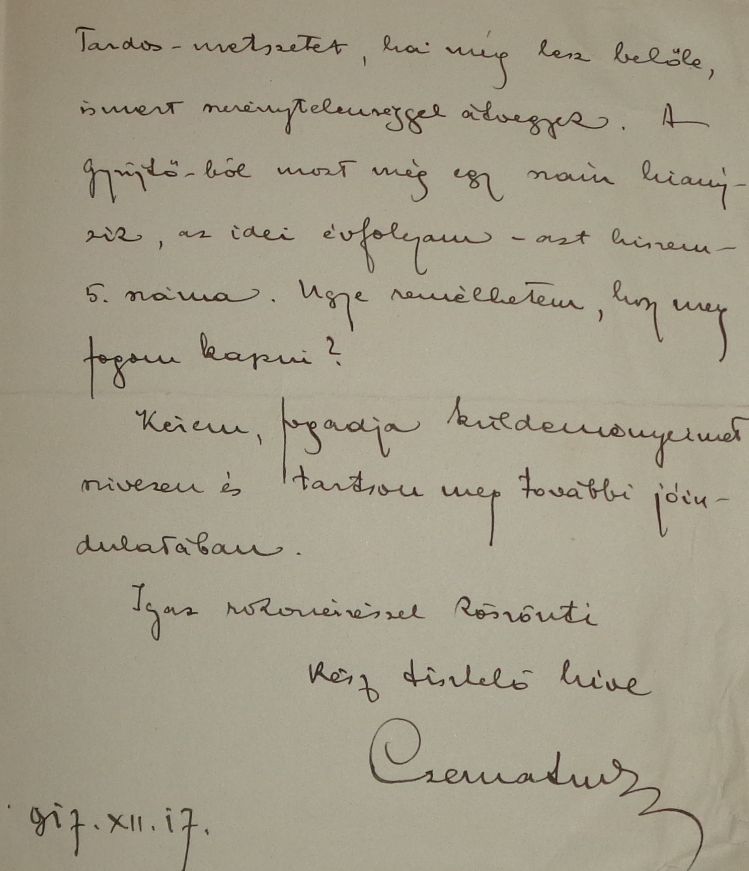 Tardos-metszetet, ha még lesz belőle,
ismert szerénytelenséggel átveszek. A
Gyűjtő-ből most még egy szám hiány-
zik, az idei évfolyam - azt hiszem -
5. száma. Ugye remélhetem, hogy meg
fogom kapni?
Kérem, fogadja küldeményeimet
szivesen és tartson meg további jóin-
dulatában.
Igaz rokonérzéssel köszönti
kész tisztelő híve
XII. 17.